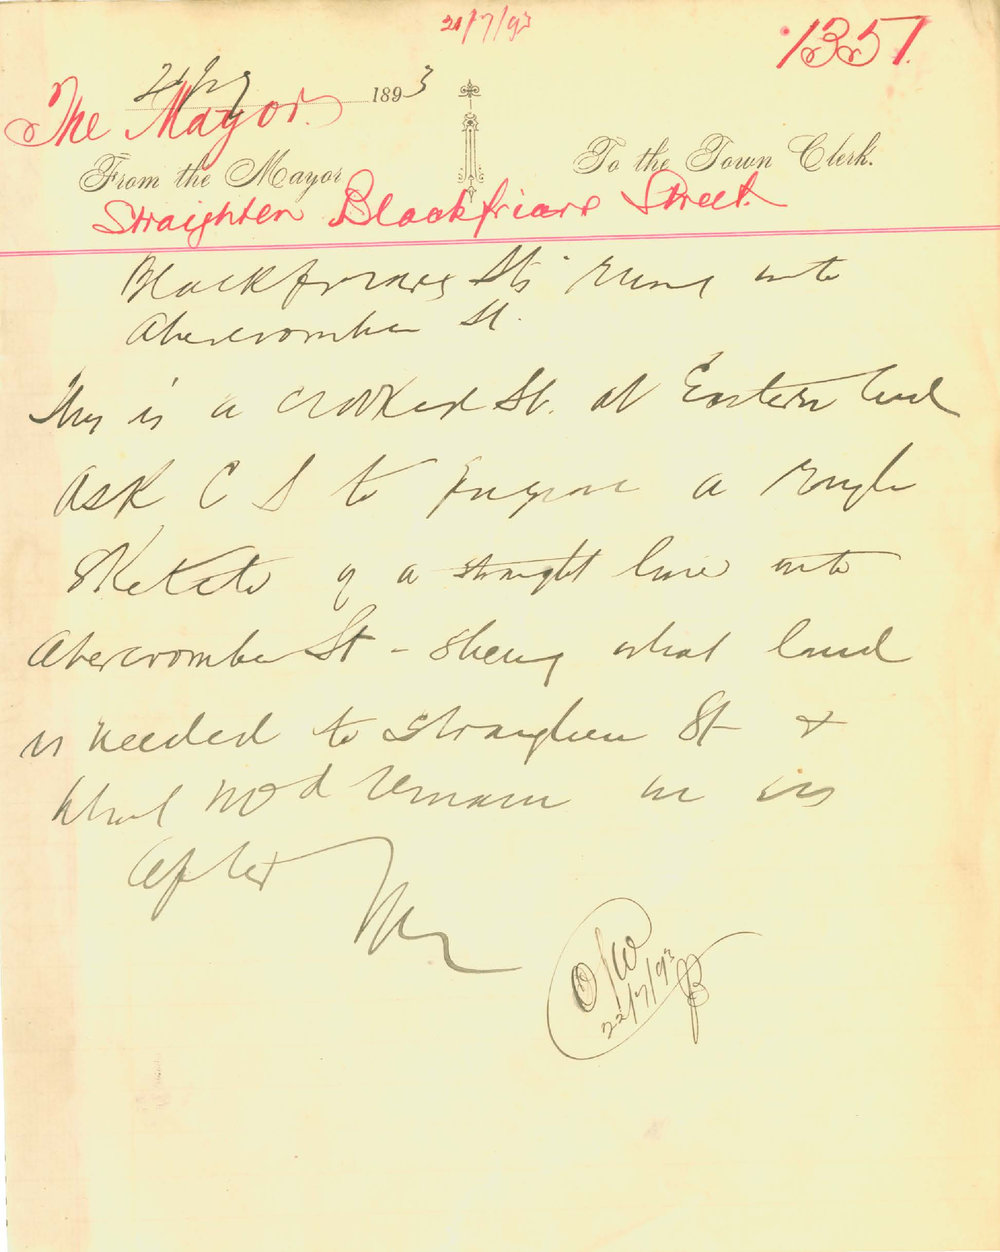 21/7/93
1357
21/7 1893
The Mayor.
From the Mayor To the Town Clerk.
Straighten Blackfriars Street.
Blackfriars St running into
Abercrombie St.
This is a crooked St. at Eastern End
Ask C S to prepare a rough
Sketch of a straight line into
Abercrombie St - shewing what land
is needed to straighten St &
what wod remain
after
22/7/93